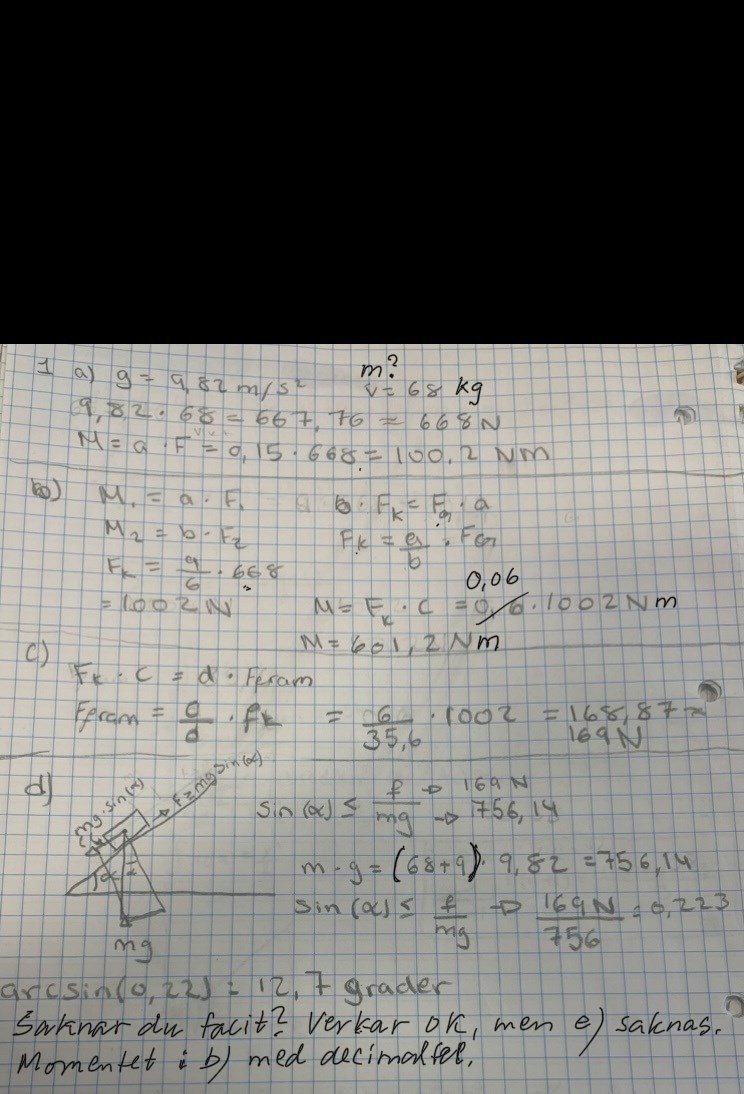 1 a) g = 9,82 m/s² m? v = 68 kg
9,82 · 68 = 667,76 ≈ 668 N
M = a · F = 0,15 · 668 = 100,2 Nm
b) M₁ = a · F₁ b · Fₖ = F_G · a
M₂ = b · F₂ Fₖ = a/b · F_G
Fₖ = a/6 · 668
= 1002 N M = Fₖ · c = 0,6 · 1002 Nm
0,06
M = 601,2 Nm
c) Fₖ · c = d · Ffram
Ffram = c/d · fk = 6/35,6 · 1002 = 168,87 ≈
169 N
d) mg · sin(α) F = mg sin(α)
sin(α) ≤ f/mg → 169 N → 756,14
m · g = (68+9) · 9,82 = 756,14
sin(α) ≤ f/mg → 169 N/756 = 0,223
mg
arcsin(0,22) = 12,7 grader
Saknar du facit? Verkar OK, men e) saknas.
Momentet i b) med decimalfel.